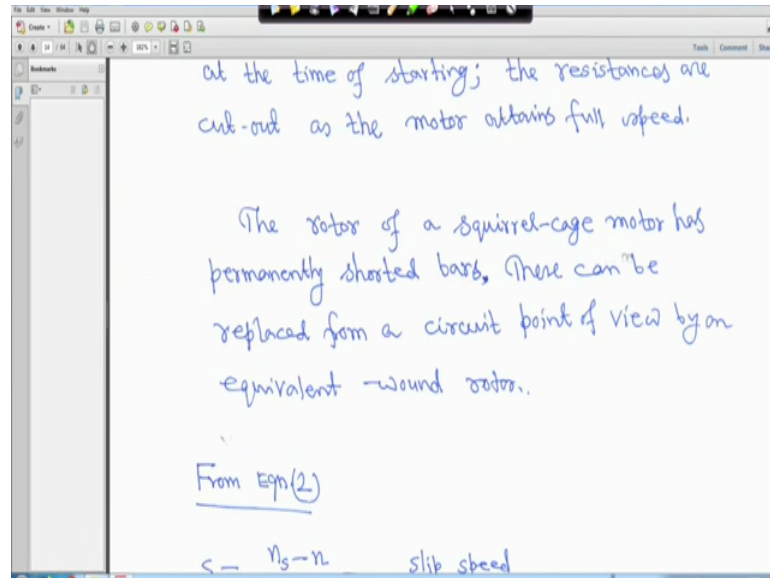 File Edit View Window Help
Create
14 / 44
182%
Tools Comment Share
Bookmarks
at the time of starting; the resistances are
cut-out as the motor attains full speed.
The rotor of a squirrel-cage motor has
permanently shorted bars. These can be
replaced from a circuit point of view by an
equivalent -wound rotor.
From Eqn(2)
S = ns-n slip speed